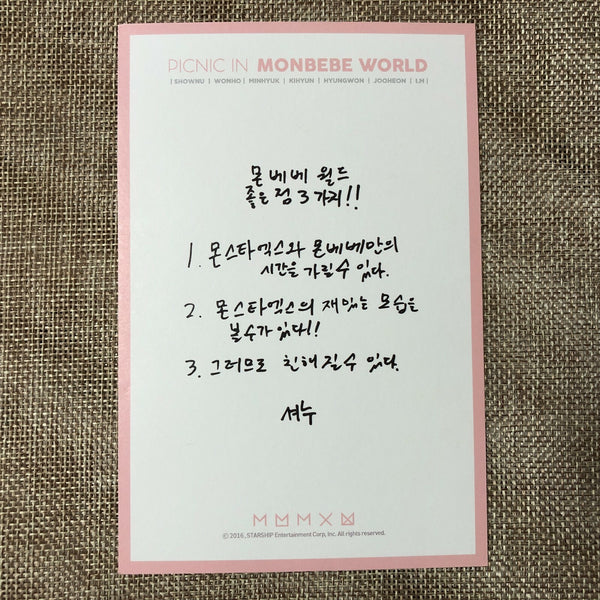 PICNIC IN MONBEBE WORLD
| SHOWNU | WONHO | MINHYUK | KIHYUN | HYUNGWON | JOOHEON | I.M |
몬베베 월드
좋은점 3가지!!
1. 몬스타엑스와 몬베베만의
시간을 가질수 있다.
2. 몬스타엑스의 재밌는 모습을
볼수가 있다!!
3. 그러므로 친해질수 있다.
셔누
© 2016, STARSHIP Entertainment Corp, Inc. All rights reserved.